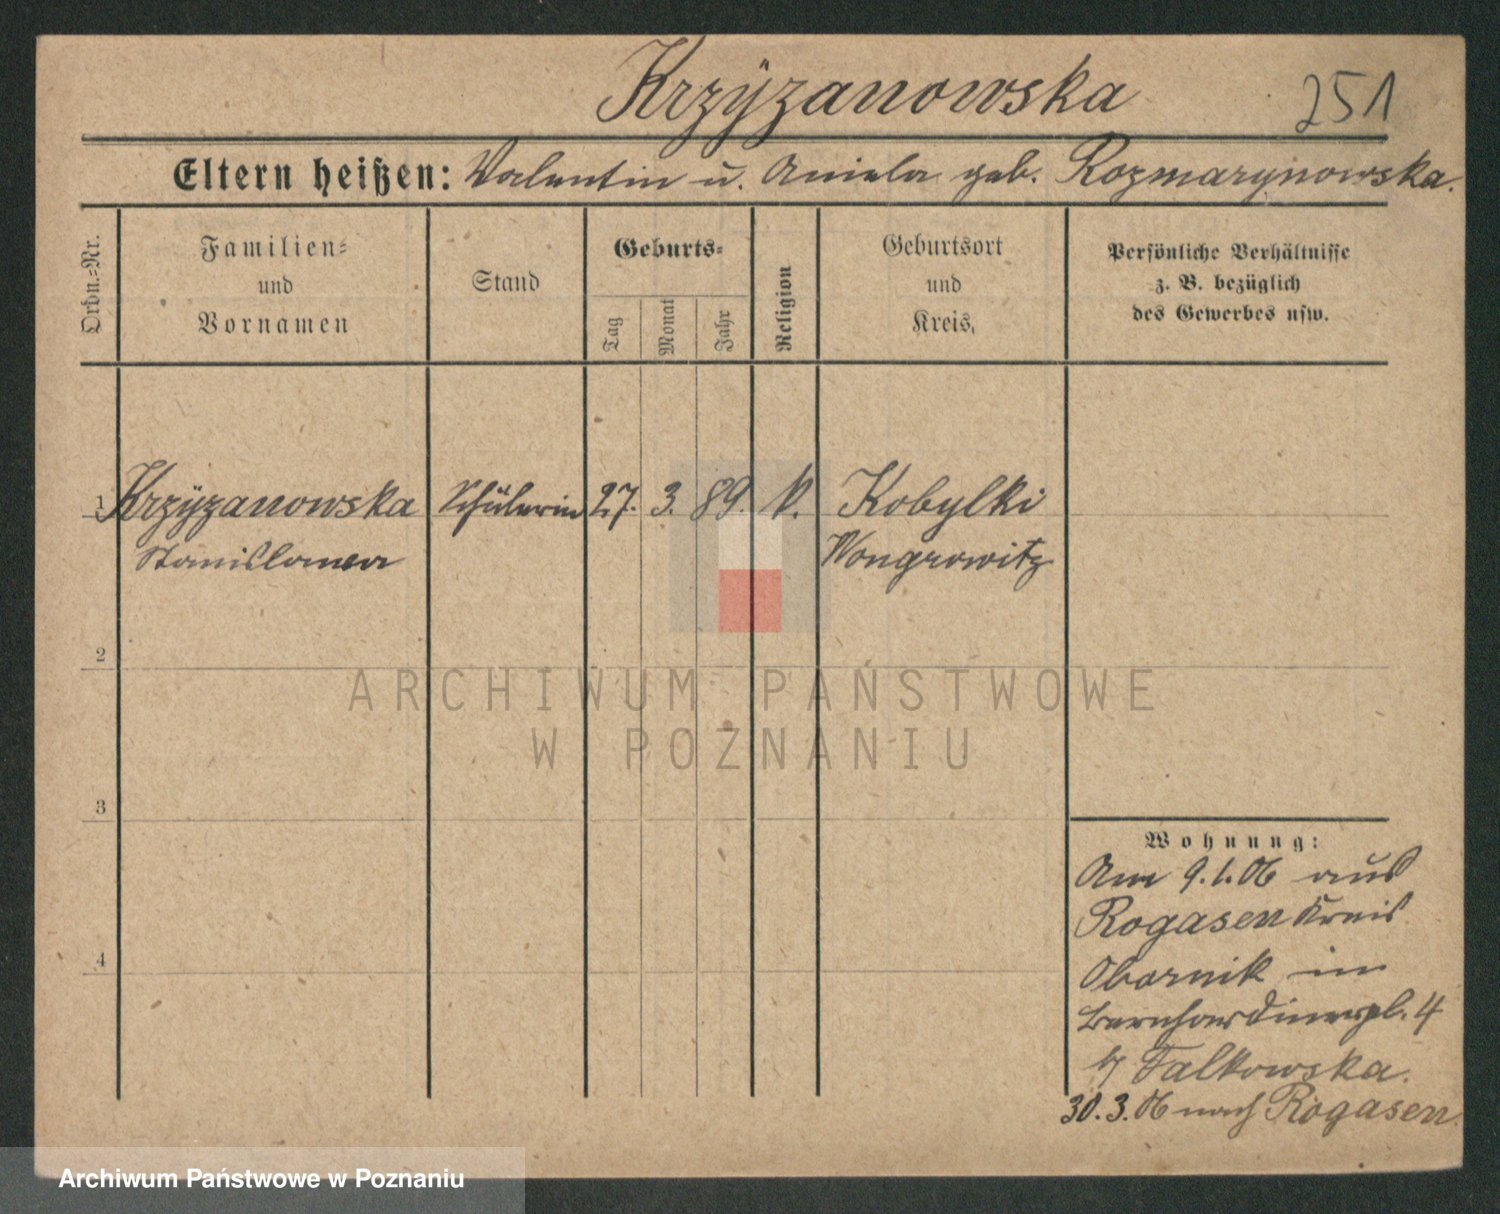 Krzÿzanowska 251
Eltern heißen: Valentin u. Aniela geb. Rozmarynowska.
Ordn.=Nr.
Familien=
und
Vornamen
Stand
Geburts=
Tag
Monat
Jahr
Religion
Geburtsort
und
Kreis,
Persönliche Verhältnisse
z. B. bezüglich
des Gewerbes usw.
1 Krzÿzanowska Schülerin 27. 3. 89. k. Kobylki
Stanislawa Wongrowitz
2
3
4
Wohnung:
Am 9.1.06 aus
Rogasen Kreis
Obornik in
Bernhardinerpl. 4
b/ Falkowska.
30.3.06 nach Rogasen.
ARCHIWUM PAŃSTWOWE
W POZNANIU
Archiwum Państwowe w Poznaniu